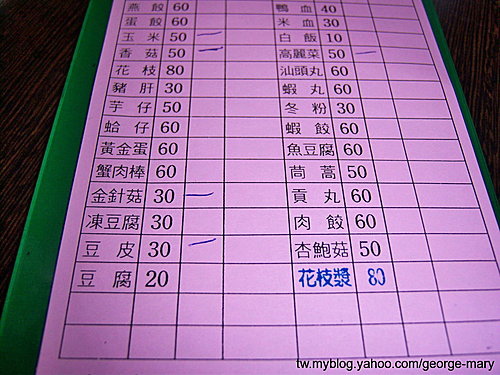 燕餃 60 鴨血 40
蛋餃 60 米血 30
玉米 50 白飯 10
香菇 50 高麗菜 50
花枝 80 汕頭丸 60
豬肝 30 蝦丸 60
芋仔 50 冬粉 30
蛤仔 60 蝦餃 60
黃金蛋 60 魚豆腐 60
蟹肉棒 60 茼蒿 50
金針菇 30 貢丸 60
凍豆腐 30 肉餃 60
豆皮 30 杏鮑菇 50
豆腐 20 花枝漿 80
tw.myblog.yahoo.com/george-mary